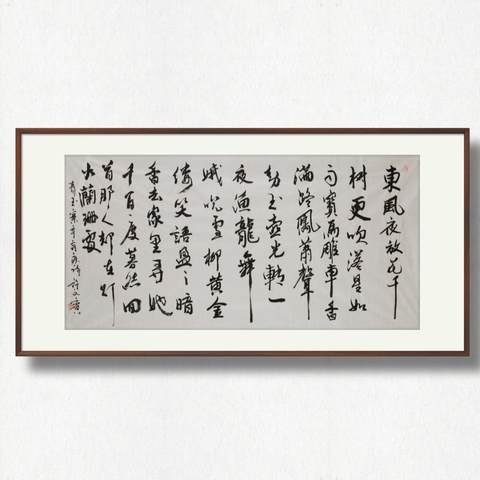 東風夜放花千
樹更吹落星如
雨寳馬雕車香
滿路鳳蕭聲
動玉壺光轉一
夜魚龍舞
娥兒雪柳黄金
缕笑語盈〻暗
香去衆里尋他
千百度暮然回
首那人却在灯
火蘭珊處
青玉案辛弃疾